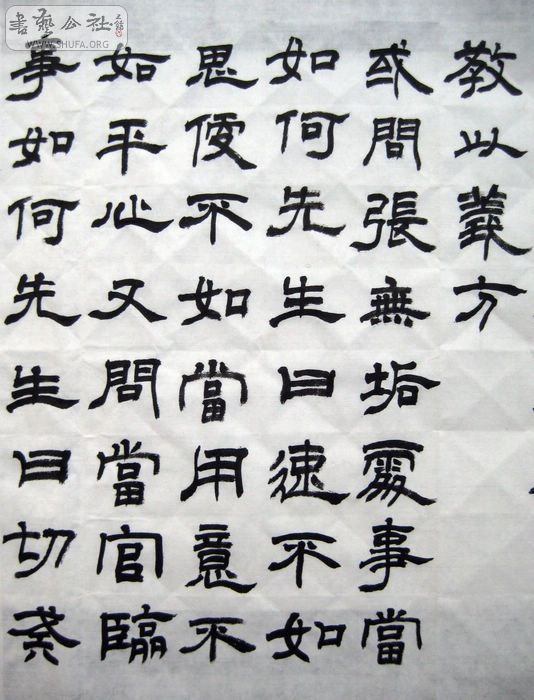 教以義方
或問張無垢處事當
如何先生曰速不如
思便不如當用意不
如平心又問當官臨
事如何先生曰切莫
書藝公社
WWW.SHUFA.ORG